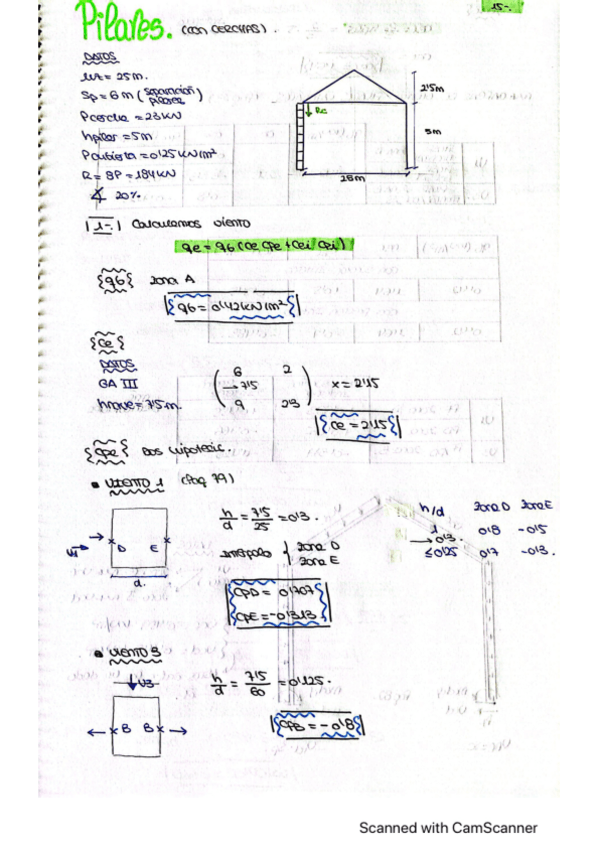 Pilares. (CON CERCHAS). 15-.
DATOS
Luz = 25m.
Sp = 6m (separación pilares)
Pcercha = 23 KN
hpilar = 5m
Pcubierta = 0'25 KN/m²
R = 8P = 184 KN
∡ 20%
Rc
2'5m
5m
25m
1-. Calculamos viento
qe = qb (Ce Cpe + Cei Cpi)
{qb} zona A
qb = 0'42 KN/m²
{Ce}
DATOS
GA III
hnave = 7'5m.
6 2
→ 7'5
9 2'3
x = 2'15
Ce = 2'15
{Cpe} Dos hipotesis.
• VIENTO 1 (Pag 79)
V1
D E
d.
h/d = 7'5/25 = 0'3.
Interpolo { zona D
zona E
CpD = 0'707
CpE = -0'313
h/d zona D zona E
1 0'8 -0'5
→ 0'3.
≤ 0'25 0'7 -0'3.
• VIENTO 3
V3
B B
h/d = 7'5/60 = 0'125.
CpB = -0'8
Scanned with CamScanner